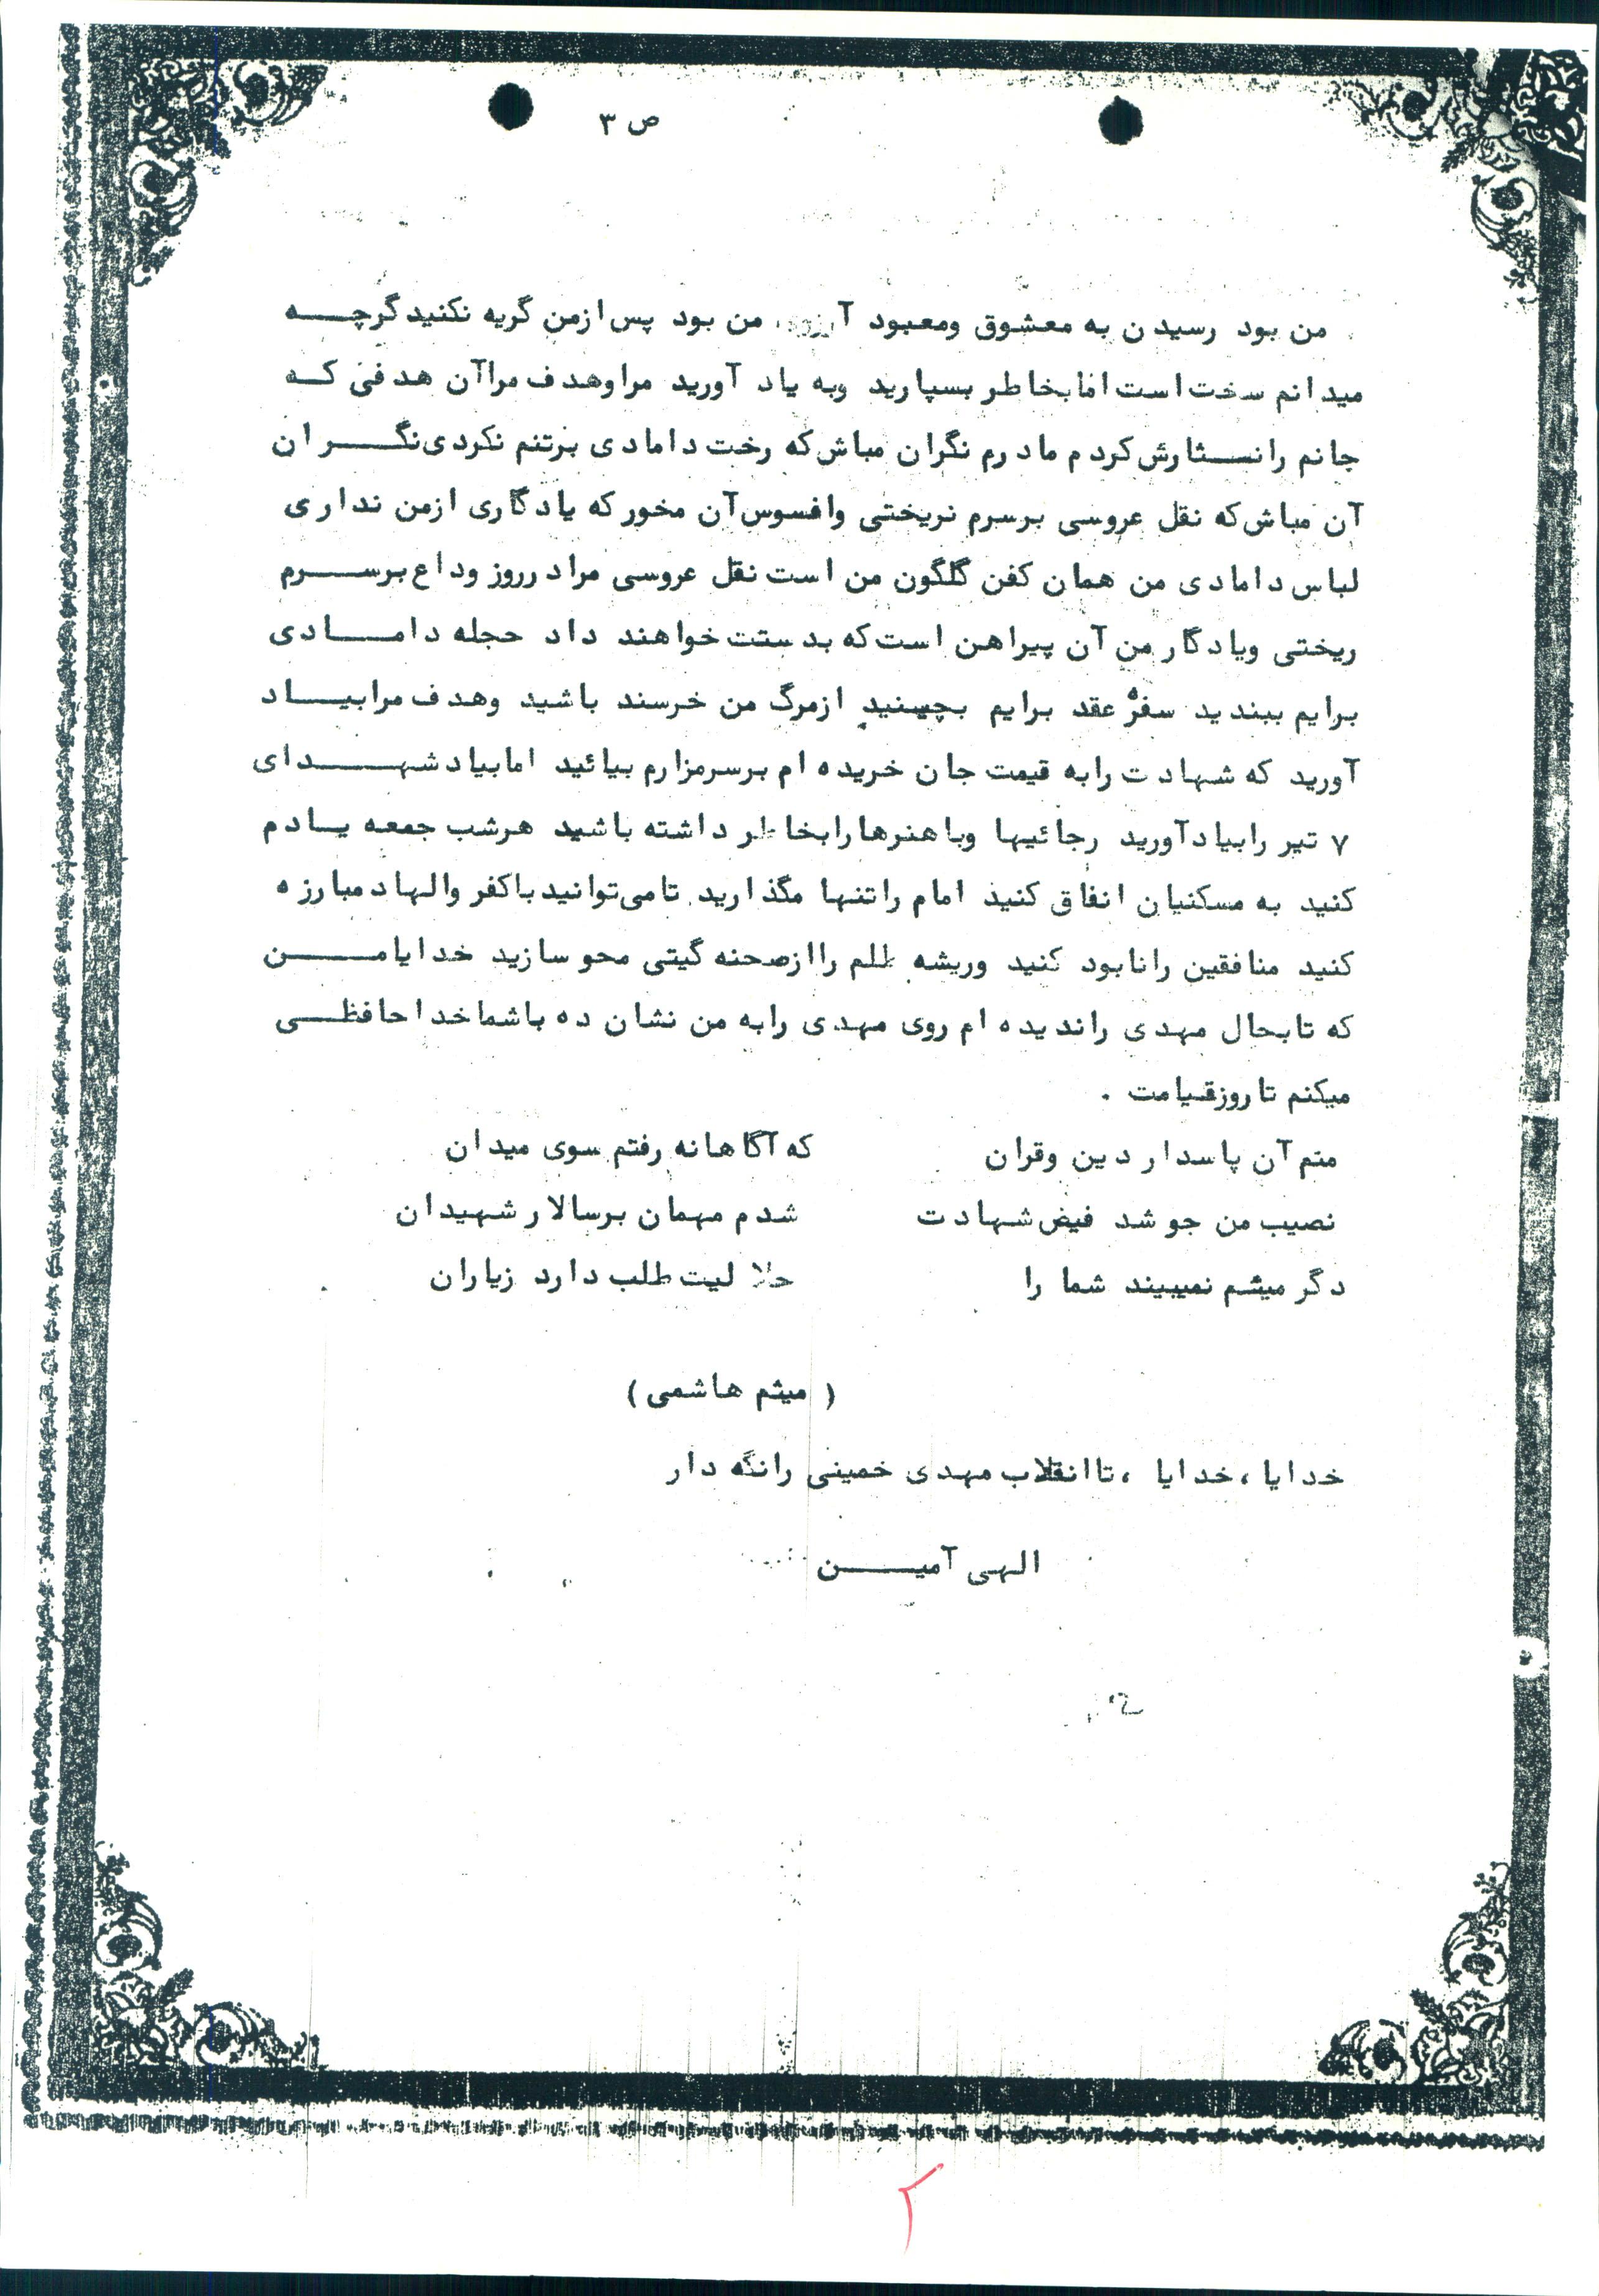 ص ۳
من بود رسیدن به معشوق ومعبود من بود پس ازمن گریه نکنید گرچه
میدانم سخت است امابخاطر بسپارید وبه یاد آورید مراوهدف مراآن هدفی که
جانم رانثارش کردم مادرم نگران مباش که رخت دامادی برتنم نکردی نگران
آن مباش که نقل عروسی برسرم نریختی وافسوس آن مخور که یادگاری ازمن نداری
لباس دامادی من همان کفن گلگون من است نقل عروسی مرادرروز وداع برسرم
ریختی ویادگار من آن پیراهن است که بدستت خواهند داد حجله دامادی
برایم ببندید سفرهٔ عقد برایم بچینید ازمرگ من خرسند باشید وهدف مرابیاد
آورید که شهادت رابه قیمت جان خریده ام برسرمزارم بیائید امابیادشهدای
۷ تیر رابیادآورید رجائیها وباهنرهارابخاطر داشته باشید هرشب جمعه یادم
کنید به مسکنیان انفاق کنید امام راتنها مگذارید تامی‌توانیدباکفر والهاد مبارزه
کنید منافقین رانابود کنید وریشه ظلم راازصحنه گیتی محو سازید خدایامن
که تابحال مهدی راندیده ام روی مهدی رابه من نشان ده باشماخداحافظی
میکنم تاروزقیامت .
منم آن پاسدار دین وقران که آگاهانه رفتم سوی میدان
نصیب من جو شد فیض شهادت شدم مهمان برسالار شهیدان
دگر میثم نمیبیند شما را حلا لیت طلب دارد زیاران
( میثم هاشمی )
خدایا ، خدایا ، تاانقلاب مهدی خمینی رانگه دار
الهی آمین
۲